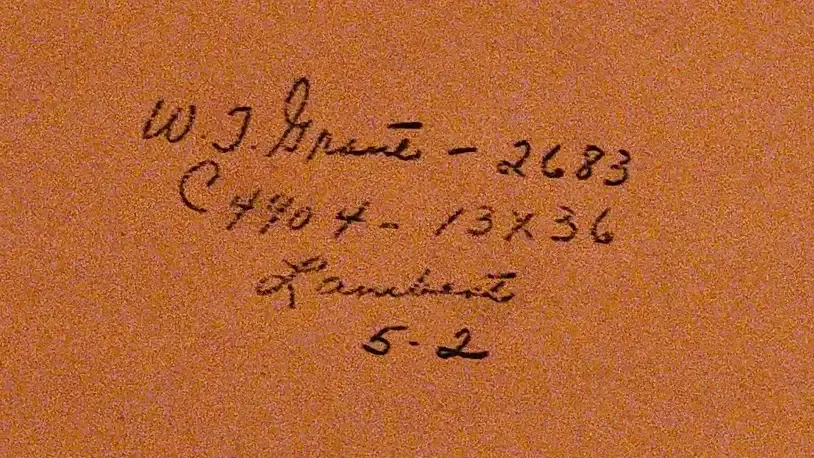 W. T. Grant - 2683
C4904 - 13X36
Lambert
5-2